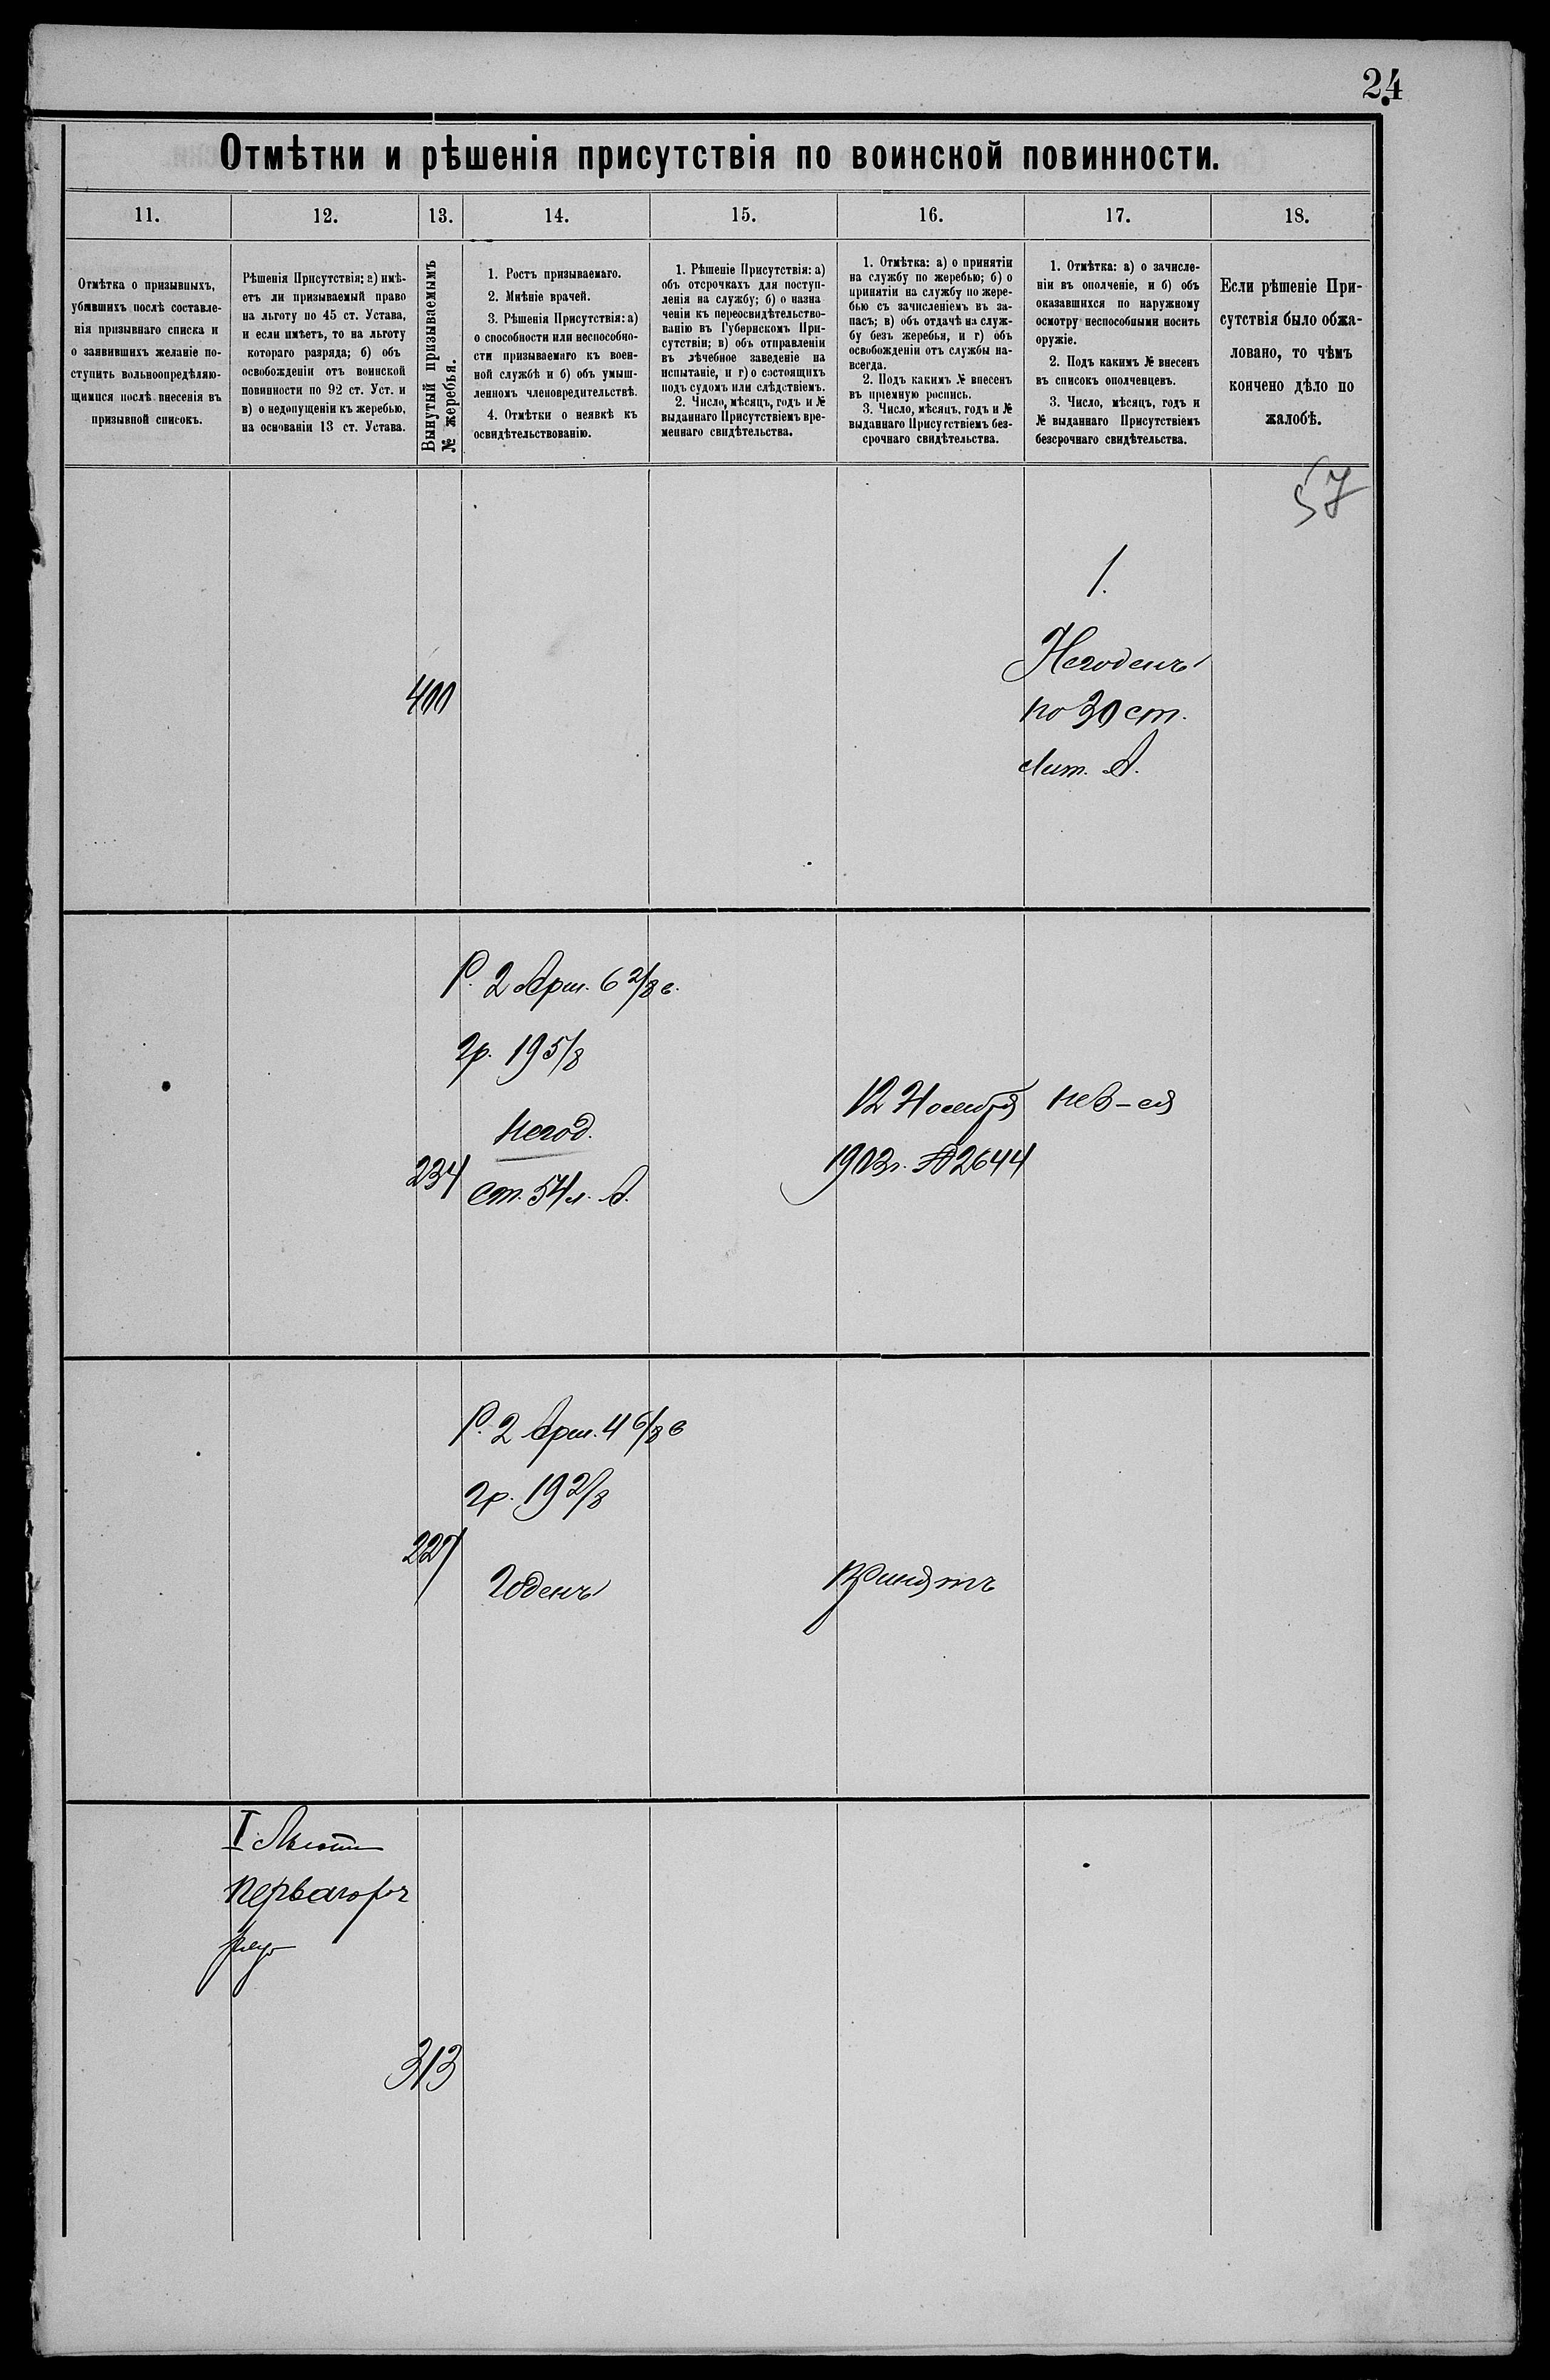 24
Отмѣтки и рѣшенія присутствія по воинской повинности.
11.
12.
13.
14.
15.
16.
17.
18.
Отмѣтка о призывныхъ,
убывшихъ послѣ составле-
нія призывнаго списка и
о заявившихъ желаніе по-
ступить вольноопредѣляю-
щимися послѣ внесенія въ
призывной списокъ.
Рѣшенія Присутствія: а) имѣ-
етъ ли призываемый право
на льготу по 45 ст. Устава,
и если имѣетъ, то на льготу
котораго разряда; б) объ
освобожденіи отъ воинской
повинности по 92 ст. Уст. и
в) о недопущеніи къ жеребью,
на основаніи 13 ст. Устава.
Вынутый призываемымъ
№ жеребья.
1. Ростъ призываемаго.
2. Мнѣніе врачей.
3. Рѣшенія Присутствія: а)
о способности или неспособно-
сти призываемаго къ воен-
ной службѣ и б) объ умыш-
ленномъ членовредительствѣ.
4. Отмѣтки о неявкѣ къ
освидѣтельствованію.
1. Рѣшеніе Присутствія: а)
объ отсрочкахъ для поступ-
ленія на службу; б) о назна
ченіи къ переосвидѣтельство-
ванію въ Губернскомъ При-
сутствіи; в) объ отправленіи
въ лѣчебное заведеніе на
испытаніе, и г) о состоящихъ
подъ судомъ или слѣдствіемъ.
2. Число, мѣсяцъ, годъ и №
выданнаго Присутствіемъ вре-
меннаго свидѣтельства.
1. Отмѣтка: а) о принятіи
на службу по жеребью; б) о
принятіи на службу по жере-
бью съ зачисленіемъ въ за-
пасъ; в) объ отдачѣ на служ-
бу безъ жеребья, и г) объ
освобожденіи отъ службы на-
всегда.
2. Подъ какимъ № внесенъ
въ пріемную роспись.
3. Число, мѣсяцъ, годъ и №
выданнаго Присутствіемъ без-
срочнаго свидѣтельства.
1. Отмѣтка: а) о зачисле-
ніи въ ополченіе, и б) объ
оказавшихся по наружному
осмотру неспособными носить
оружіе.
2. Подъ какимъ № внесенъ
въ списокъ ополченцевъ.
3. Число, мѣсяцъ, годъ и
№ выданнаго Присутствіемъ
безсрочнаго свидѣтельства.
Если рѣшеніе При-
сутствія было обжа-
ловано, то чѣмъ
кончено дѣло по
жалобѣ.
57
400
1.
Негоденъ
по 30 ст.
Лит. А.
Р. 2 Арш. 6 2/8 в.
гр. 19 5/8
негод.
234
ст. 54 л. А.
12 Ноября
1903 г. № 2644
Р. 2 Арш. 4 6/8 в
гр. 19 2/8
227
годенъ
принятъ
I
перваго
313